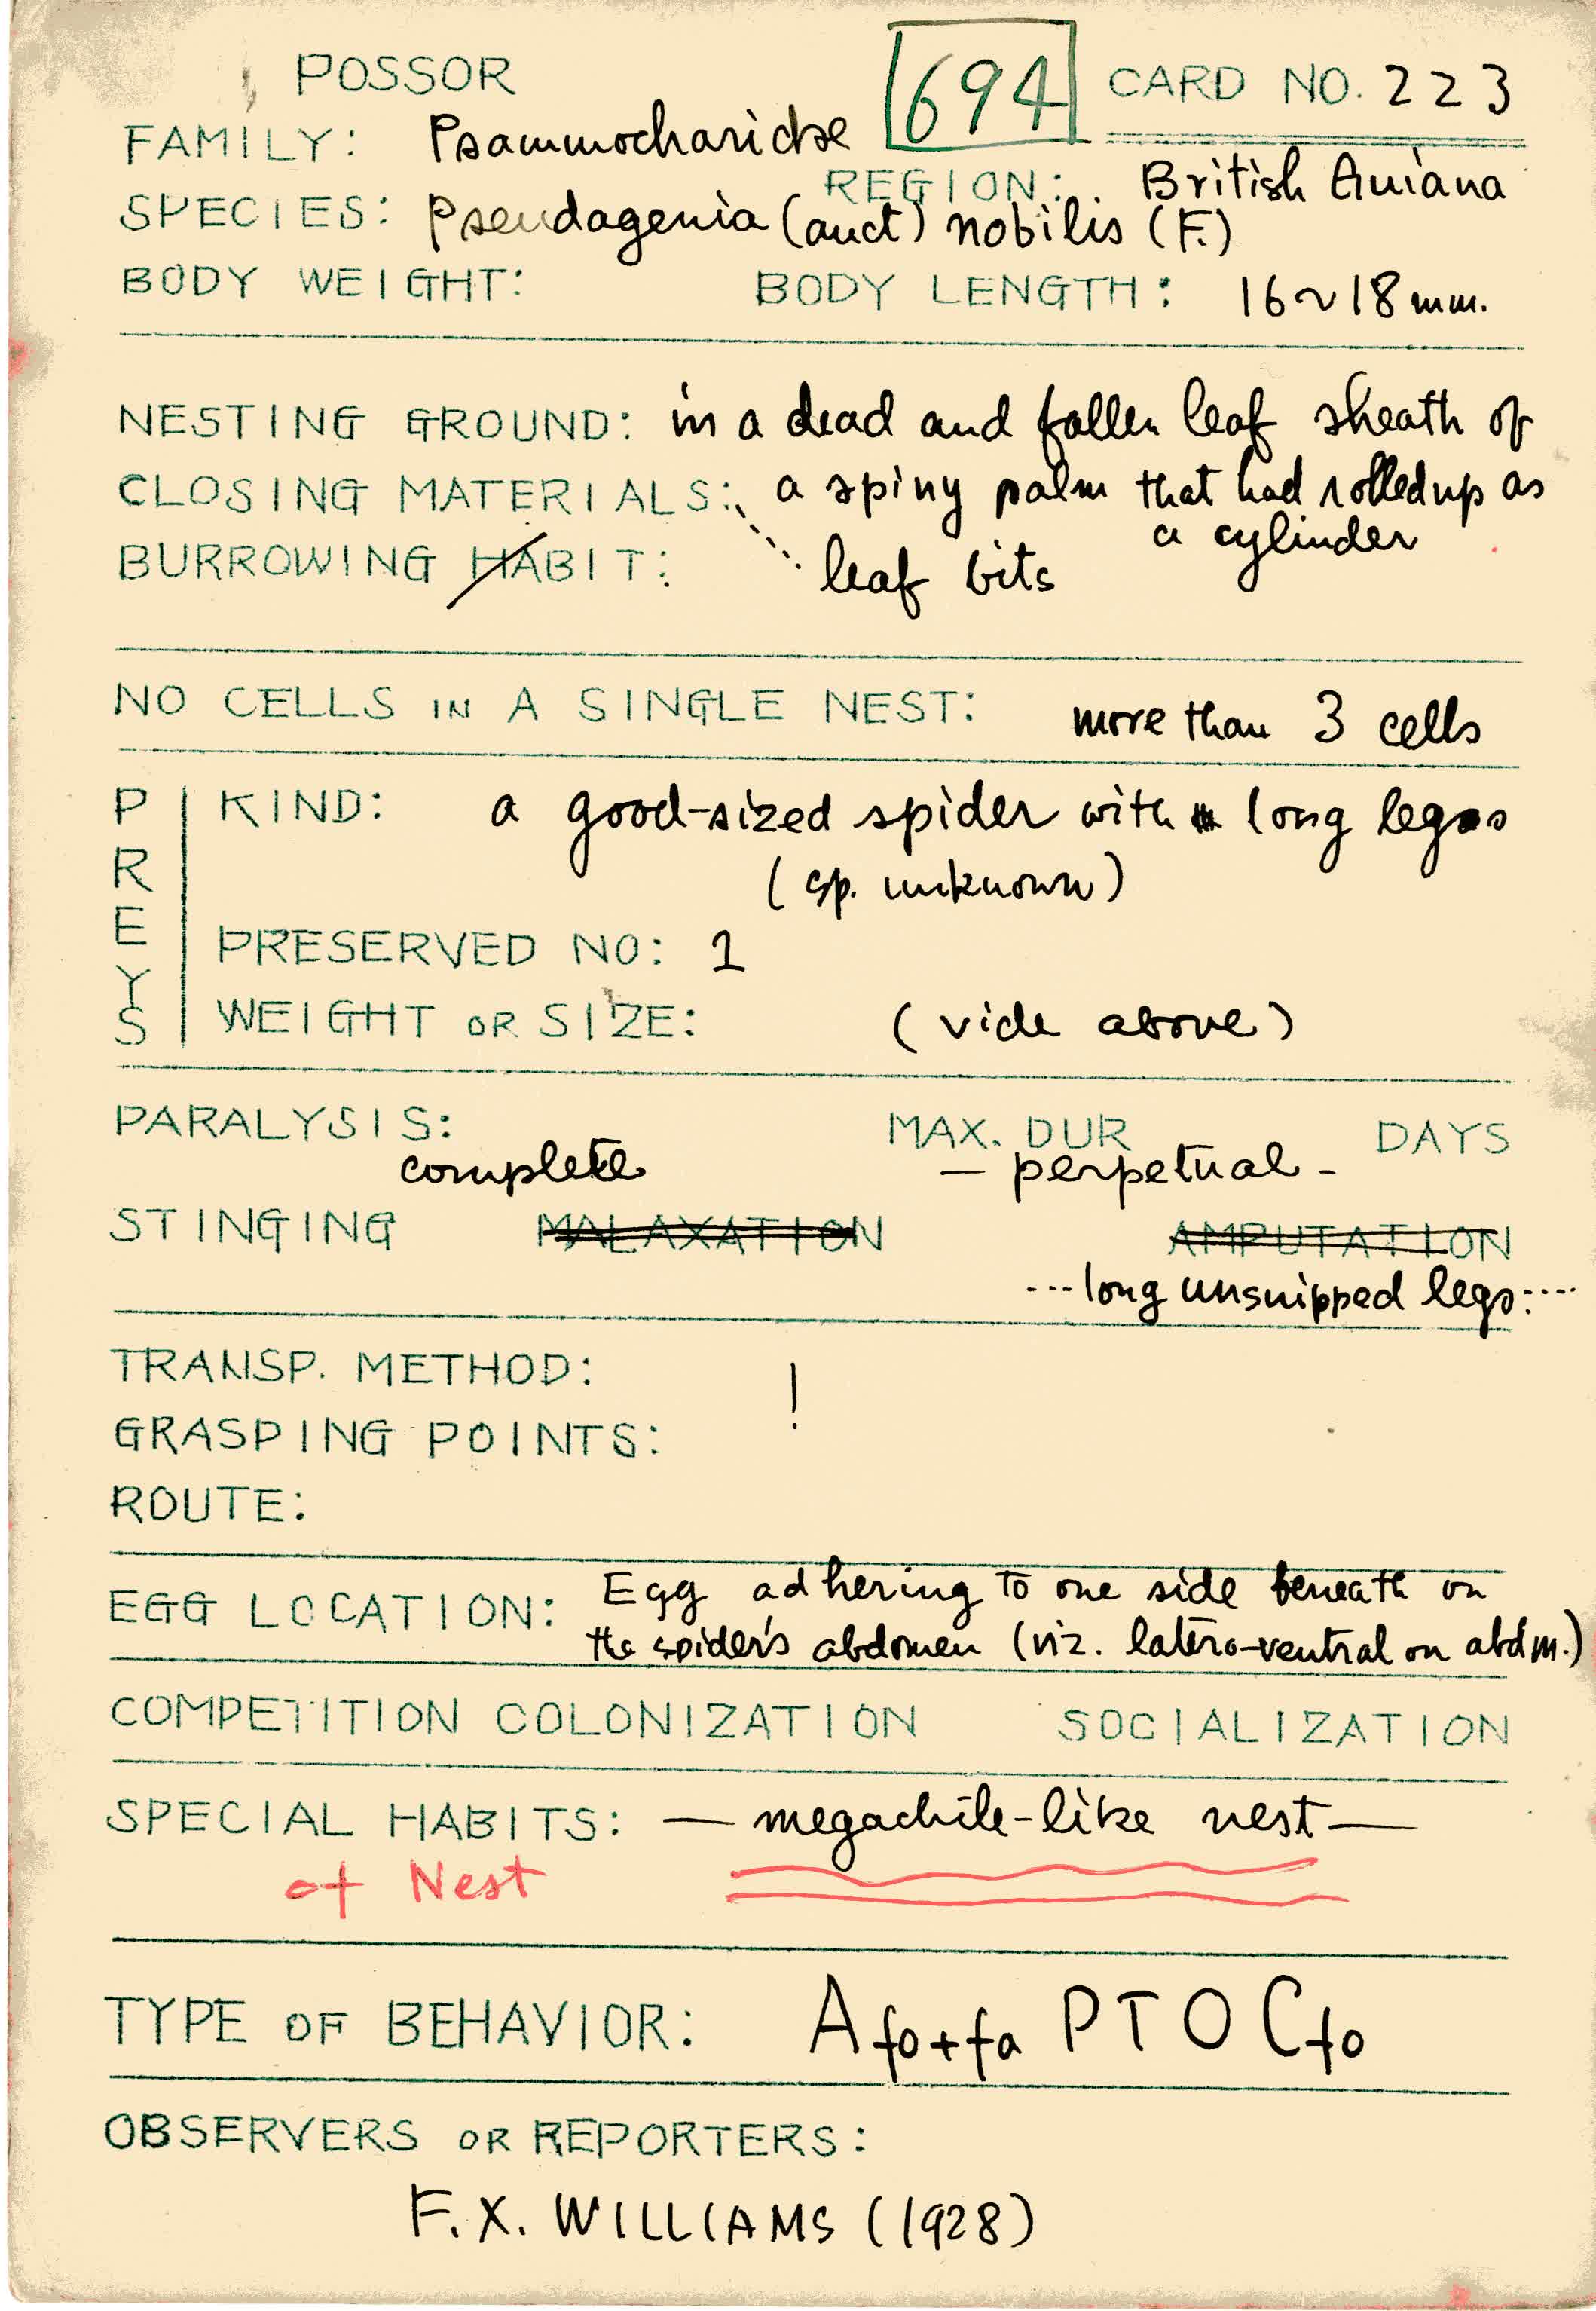 POSSOR
694
CARD NO. 223
FAMILY: Psammocharidae
REGION: British Guiana
SPECIES: Pseudagenia (auct) nobilis (F.)
BODY WEIGHT: BODY LENGTH: 16~18 mm.
NESTING GROUND: in a dead and fallen leaf sheath of
CLOSING MATERIALS: a spiny palm that had rolled up as
a cylinder
BURROWING HABIT: leaf bits
NO CELLS IN A SINGLE NEST: more than 3 cells
PREYS
KIND: a good-sized spider with long legs
(sp. unknown)
PRESERVED NO: 1
WEIGHT OR SIZE: (vide above)
PARALYSIS: MAX. DUR DAYS
complete – perpetual –
STINGING MALAXATION AMPUTATION
---long unsnipped legs:----
TRANSP. METHOD: !
GRASPING POINTS:
ROUTE:
EGG LOCATION: Egg adhering to one side beneath on
the spider's abdomen (viz. latero-ventral on abdm.)
COMPETITION COLONIZATION SOCIALIZATION
SPECIAL HABITS: — megachile-like nest —
of Nest
TYPE OF BEHAVIOR: Afo+fa PTOCfo
OBSERVERS OR REPORTERS:
F. X. WILLIAMS (1928)